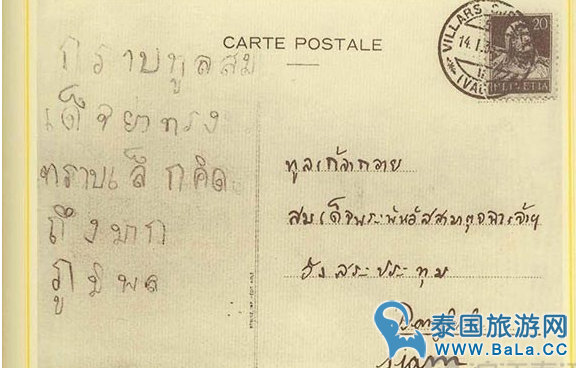 CARTE POSTALE
VILLARS S/
14.I.3
(VA
20
HELVETIA
กราบทูลสม
เด็จย่าทรง
ทราบเล็กคิด
ถึงมาก
ภูมิพล
ทูลเกล้าถวาย
สมเด็จพระพันวัสสามาตุจฉาเจ้าฯ
วังสระประทุม
Siam
泰国旅游网
www.BaLa.CC